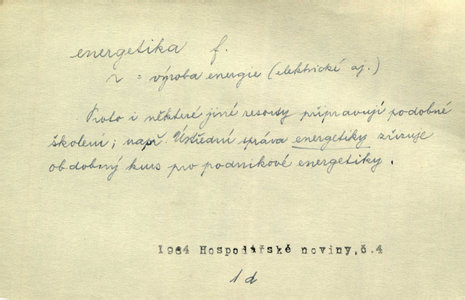 energetika f.
= výroba energie (elektrické aj.)
Proto i některé jiné resorty připravují podobné
školení; např. Ústřední správa energetiky zřizuje
obdobný kurs pro podnikové energetiky.
1964 Hospodářské noviny,č.4
1d